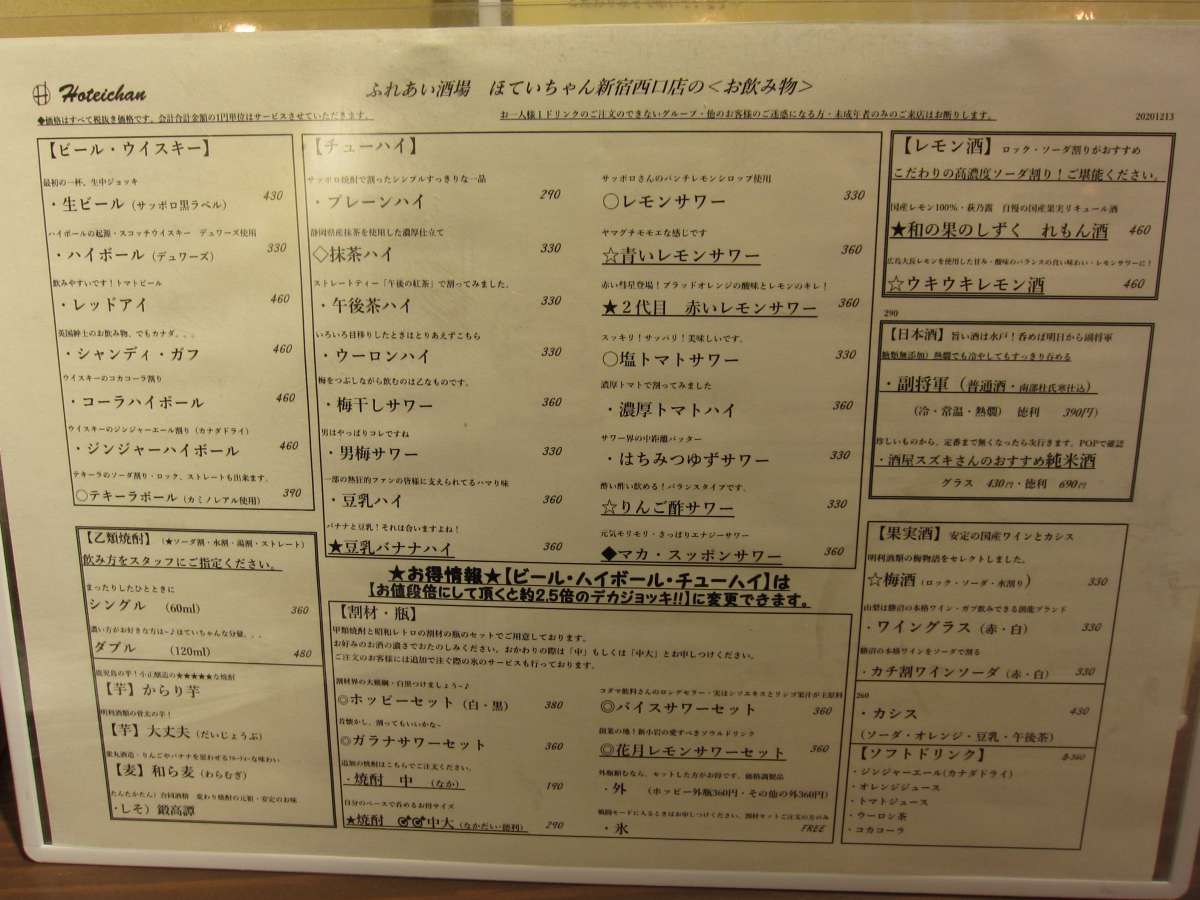 Hoteichan
ふれあい酒場 ほていちゃん新宿西口店の＜お飲み物＞
◆価格はすべて税抜き価格です。会計合計金額の1円単位はサービスさせていただきます。
お一人様１ドリンクのご注文のできないグループ・他のお客様のご迷惑になる方・未成年者のみのご来店はお断りします。
20201213
【ビール・ウイスキー】
最初の一杯、生中ジョッキ
・生ビール（サッポロ黒ラベル） 430
ハイボールの起源・スコッチウイスキー デュワーズ使用
・ハイボール（デュワーズ） 330
飲みやすいです！トマトビール
・レッドアイ 460
英国紳士のお飲み物、でもカナダ。．．
・シャンディ・ガフ 460
ウイスキーのコカコーラ割り
・コーラハイボール 460
ウイスキーのジンジャーエール割り（カナダドライ）
・ジンジャーハイボール 460
テキーラのソーダ割り・ロック、ストレートも出来ます。
○テキーラボール（カミノレアル使用） 390
【乙類焼酎】（★ソーダ割・水割・湯割・ストレート）
飲み方をスタッフにご指定ください。
まったりしたひとときに
シングル （60ml） 360
濃い方がお好きな方は~♪ほていちゃんな分量．．．
ダブル （120ml） 480
鹿児島の芋！小正醸造の★★★★★な焼酎
【芋】からり芋
明利酒類の骨太の芋！
【芋】大丈夫（だいじょうぶ）
【麦】和ら麦（わらむぎ）
たんたかたん）合同酒精 変わり焼酎の元祖・安定のお味
・しそ）鍛高譚
【チューハイ】
サッポロ焼酎で割ったシンプルすっきりな一品
・プレーンハイ 290
静岡県産抹茶を使用した濃厚仕立て
◇抹茶ハイ 330
ストレートティー「午後の紅茶」で割ってみました。
・午後茶ハイ 330
いろいろ目移りしたときはとりあえずこちら
・ウーロンハイ 330
梅をつぶしながら飲むのは乙なものです。
・梅干しサワー 360
男はやっぱりコレですね
・男梅サワー 330
一部の熱狂的ファンの皆様に支えられてるハマり味
・豆乳ハイ 360
バナナと豆乳！それは合いますよね！
★豆乳バナナハイ 360
サッポロさんのパンチレモンシロップ使用
○レモンサワー 330
ヤマグチモモエな感じです
☆青いレモンサワー 360
赤い彗星登場！ブラッドオレンジの酸味とレモンのキレ！
★２代目 赤いレモンサワー 360
スッキリ！サッパリ！美味しいです。
○塩トマトサワー 330
濃厚トマトで割ってみました
・濃厚トマトハイ 360
サワー界の中距離バッター
・はちみつゆずサワー 330
酔い酢い飲める！バランスタイプです。
☆りんご酢サワー 330
元気モリモリ・さっぱりエナジーサワー
◆マカ・スッポンサワー 360
★お得情報★【ビール・ハイボール・チューハイ】は
【お値段倍にして頂くと約2.5倍のデカジョッキ!!】に変更できます。
【割材・瓶】
甲類焼酎と昭和レトロの割材の瓶のセットでご用意しております。
お好みのお酒の濃さでおたのしみください。おかわりの際は「中」もしくは「中大」とお申しつけください。
ご注文のお客様には追加で注ぐ際の氷のサービスも行っております。
割材界の大横綱・白黒つけましょう~♪
◎ホッピーセット（白・黒） 380
昔懐かし、割ってもいいかな~
◎ガラナサワーセット 360
追加の焼酎はこちらでご注文ください。
・焼酎 中 （なか） 190
自分のペースで呑めるお得サイズ
★焼酎 ♂♂中大（なかだい・徳利） 290
コダマ飲料さんのロングセラー・実はシソエキスとリンゴ果汁が主原料
◎バイスサワーセット 360
創業の地！新小岩の愛すべきソウルドリンク
◎花月レモンサワーセット 360
外瓶頼むなら、セットした方がお得です。価格調製品
・外 （ホッピー外瓶360円・その他の外360円）
戦闘モードに入るときはお申しつけください。割材セットご注文の方のみ
・氷 FREE
【レモン酒】ロック・ソーダ割りがおすすめ
こだわりの高濃度ソーダ割り！ご堪能ください。
国産レモン100%・萩乃露 自慢の国産果実リキュール酒
★和の果のしずく れもん酒 460
広島大長レモンを使用した甘み・酸味のバランスの良い味わい・レモンサワーに！
☆ウキウキレモン酒 460
290
【日本酒】旨い酒は水戸！呑めば明日から副将軍
糖類無添加）熱燗でも冷やしてもすっきり呑める
・副将軍（普通酒・南部杜氏寒仕込）
（冷・常温・熱燗） 徳利 390円）
珍しいものから、定番まで無くなったら次行きます。POPで確認
・酒屋スズキさんのおすすめ純米酒
グラス 430円・徳利 690円
【果実酒】安定の国産ワインとカシス
明利酒類の梅物語をセレクトしました。
☆梅酒（ロック・ソーダ・水割り） 330
山梨は勝沼の本格ワイン・ガブ飲みできる創能ブランド
・ワイングラス（赤・白） 330
勝沼の本格ワインをソーダで割る
・カチ割ワインソーダ（赤・白） 330
260
・カシス 430
（ソーダ・オレンジ・豆乳・午後茶）
【ソフトドリンク】 各260
・ジンジャーエール(カナダドライ)
・オレンジジュース
・トマトジュース
・ウーロン茶
・コカコーラ